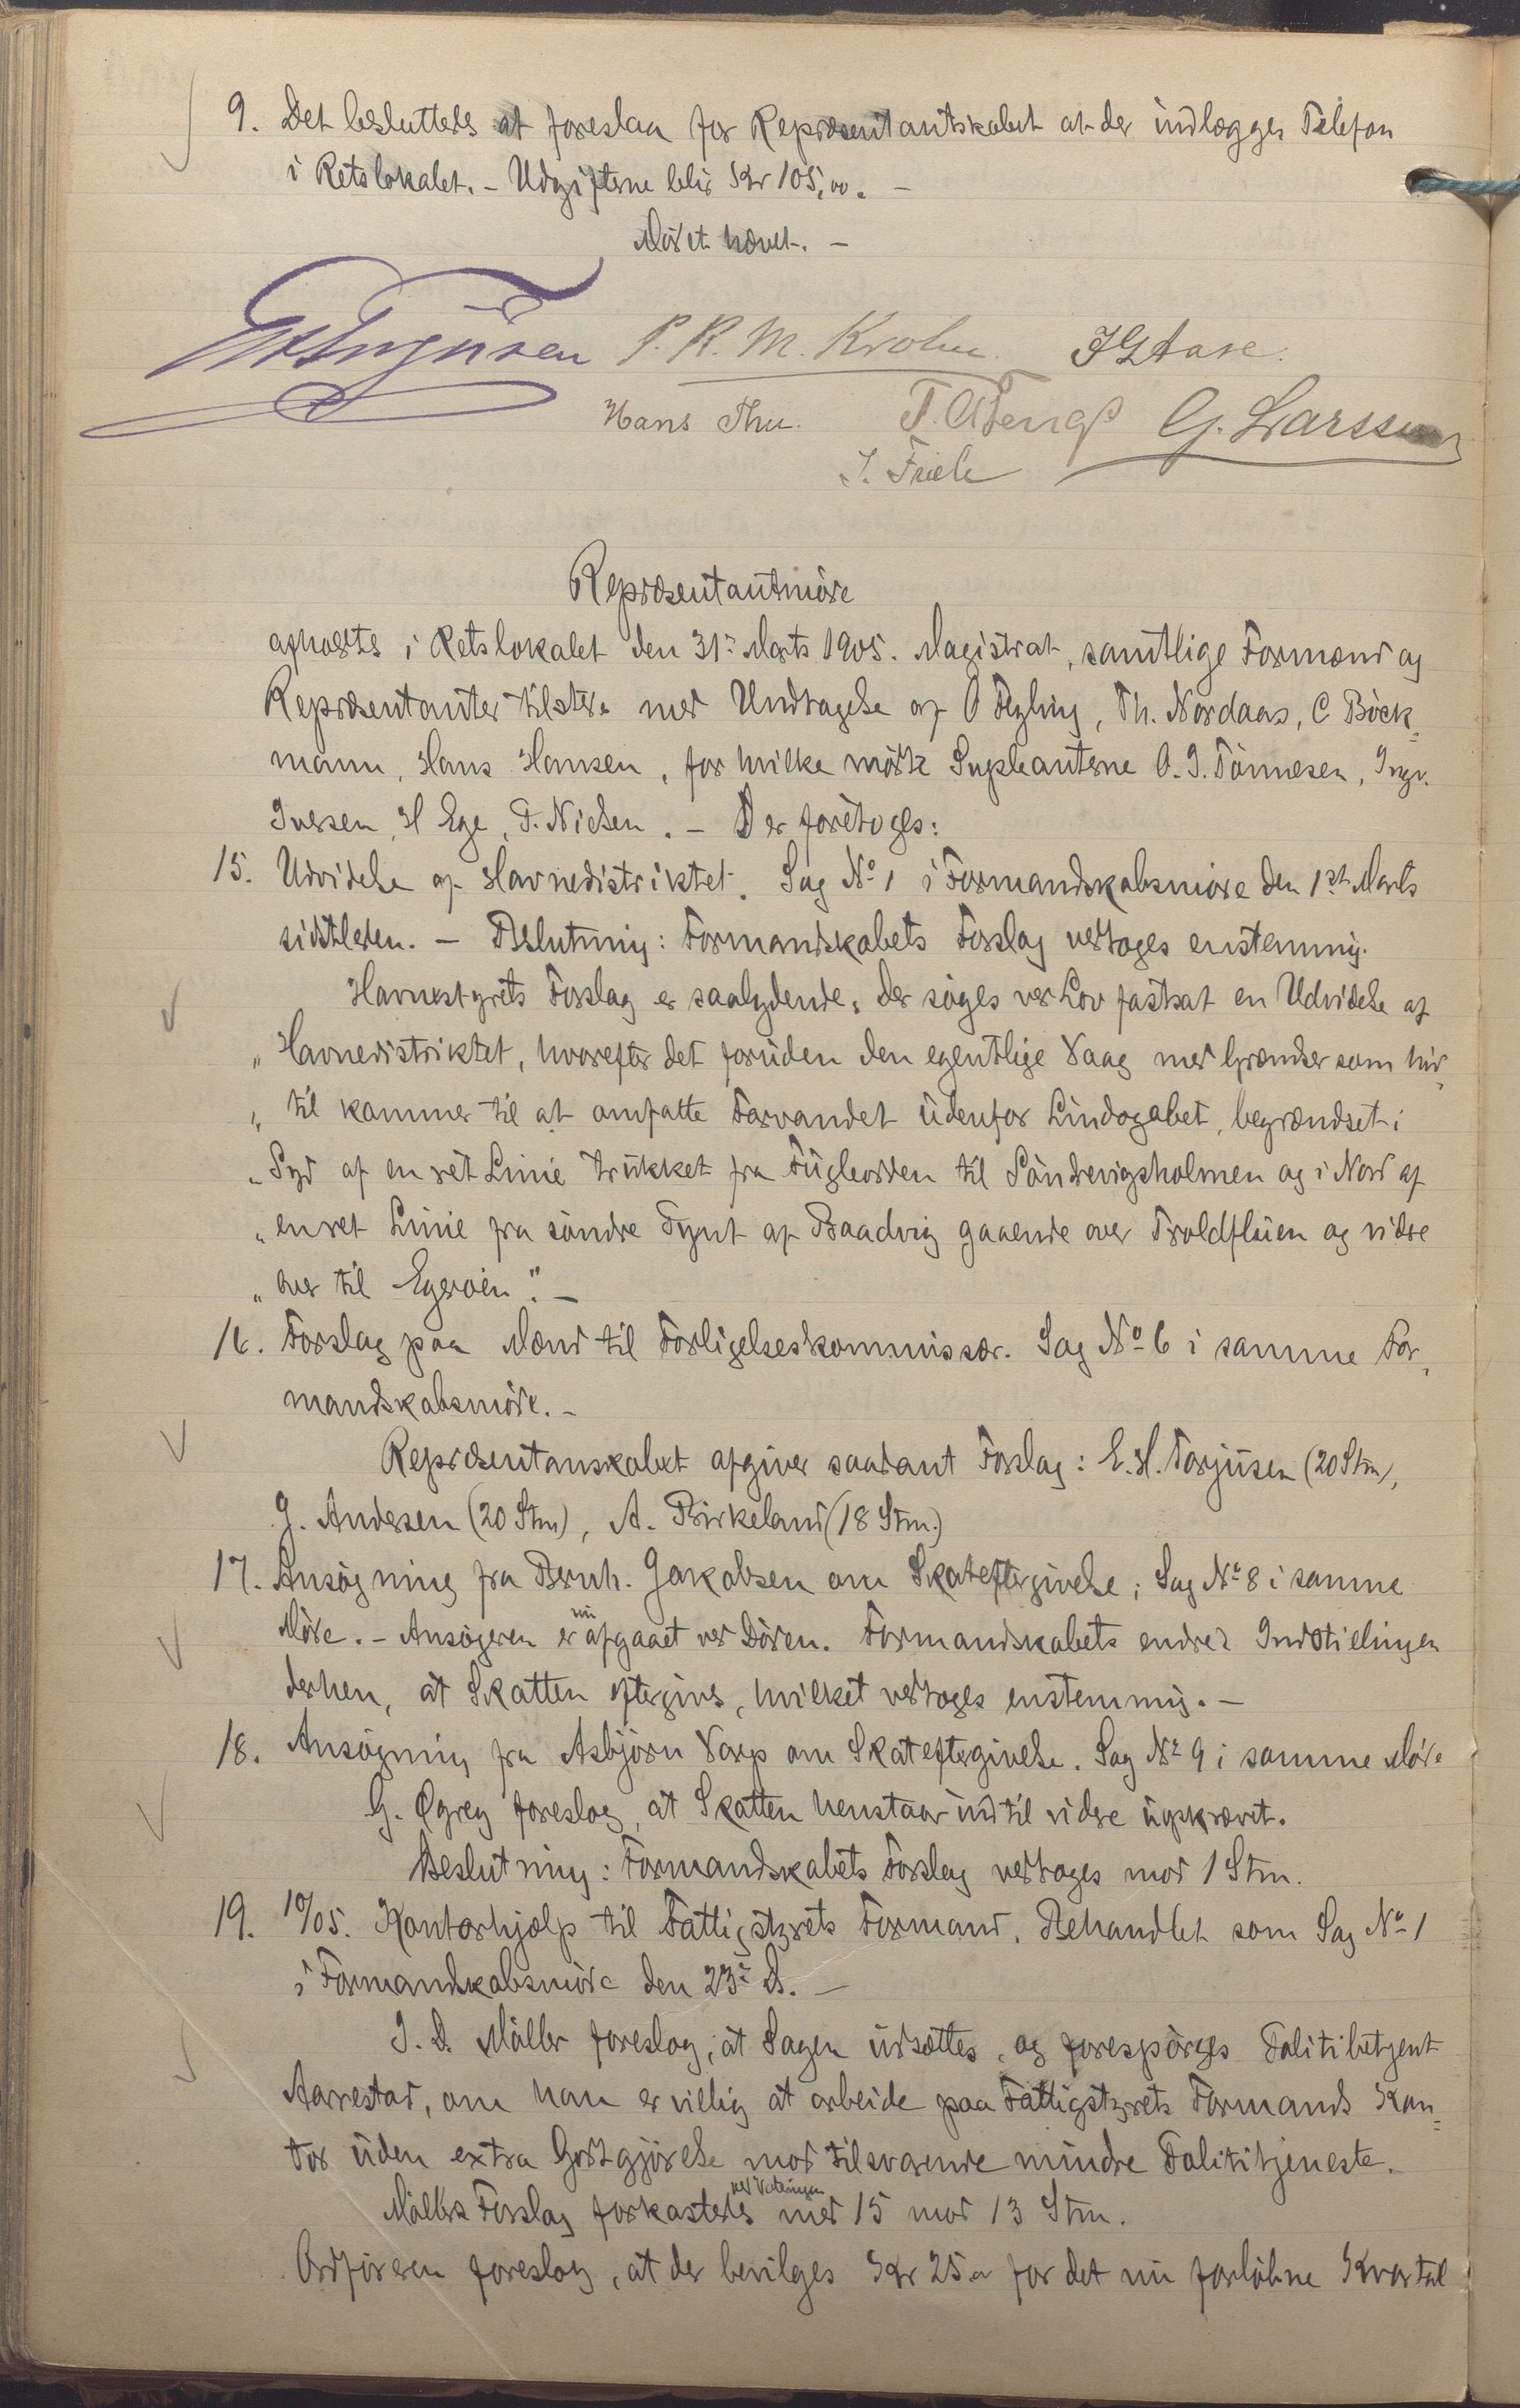 9. Det besluttedes at foreslaa for Repræsentantskabet at der indlægges Telefon
i Retslokalet. - Udgifterne blir Kr 105,00. -
Mödet hævet. -
P. R. M. Krohn. I G Aase.
Hans Thu. G. Larssen
J. Friele
Repræsentantmöde
afholdtes i Retslokalet den 31te Marts 1905. Magistrat, samtlige Formænd og
Repræsentanter tilstede med Undtagelse af O Fezling, Th. Nordaas, C Böck-
mann, Hans Hansen, for hvilke mödte Supleanterne O. I. Tönnesen, Ingv.
Iversen, H Ege, P. Nielsen. - Der foretoges:
15. Udvidelse af Havnedistriktet. Sag No 1 i Formandskabsmöde den 1ste Marts
sidstleden. - Beslutning: Formandskabets Forslag vedtoges enstemmig.
Havnestyrets Forslag er saalydende: Der söges ved Lov fastsat en Udvidelse af
" Havnedistriktet, hvorefter det foruden den egentlige Vaag med Grændser som hid-
" til kommer til at omfatte Farvandet udenfor Lindogabet, begrændset i
" Syd af en ret Linie trukket fra Fugleodden til Söndrevigsholmen og i Nord af
" en ret Linie fra söndre Pynt af Baadvig gaaende over Troldfluen og videre
" over til Egeröen". -
16. Forslag paa Mænd til Forligelseskommissær. Sag No 6 i samme For-
mandskabsmöde. -
Repræsentanskabet afgiver saadant Forslag: E. H. Torjusen (20 Stm),
G. Andersen (20 Stm), A. Birkeland (18 Stm.)
17. Ansögning fra Bernh. Jakobsen om Skateftergivelse; Sag No 8 i samme
Möde. - Ansögeren er nu afgaaet ved Döden. Formandskabets endred Indstillingen
derhen, at Skatten eftergives, hvilket vedtoges enstemmig. -
18. Ansögning fra Asbjörn Varp om Skateftergivelse. Sag No 9 i samme Möde
G. Øgrey foreslog, at Skatten henstaar indtil videre uopkrævet.
Beslutning: Formandskabets Forslag vedtoges mod 1 Stm.
19. 10/05. Kontorhjælp til Fattigstyrets Formand. Behandlet som Sag No 1
i Formandskabsmöde den 23de ds. -
I. D. Möller foreslog; at Sagen udsættes, og forespörges Politibetjent
Aarrestad, om han er villig at arbeide paa Fattigstyrets Formands Kon-
tor uden extra Godtgjörelse mod tilsvarende mindre Polititjeneste.
Möllers Forslag forkastedes ved Voteringen med 15 mod 13 Stm.
Ordföreren foreslog, at der bevilges Kr 25,00 for det nu forløbne Kvartal